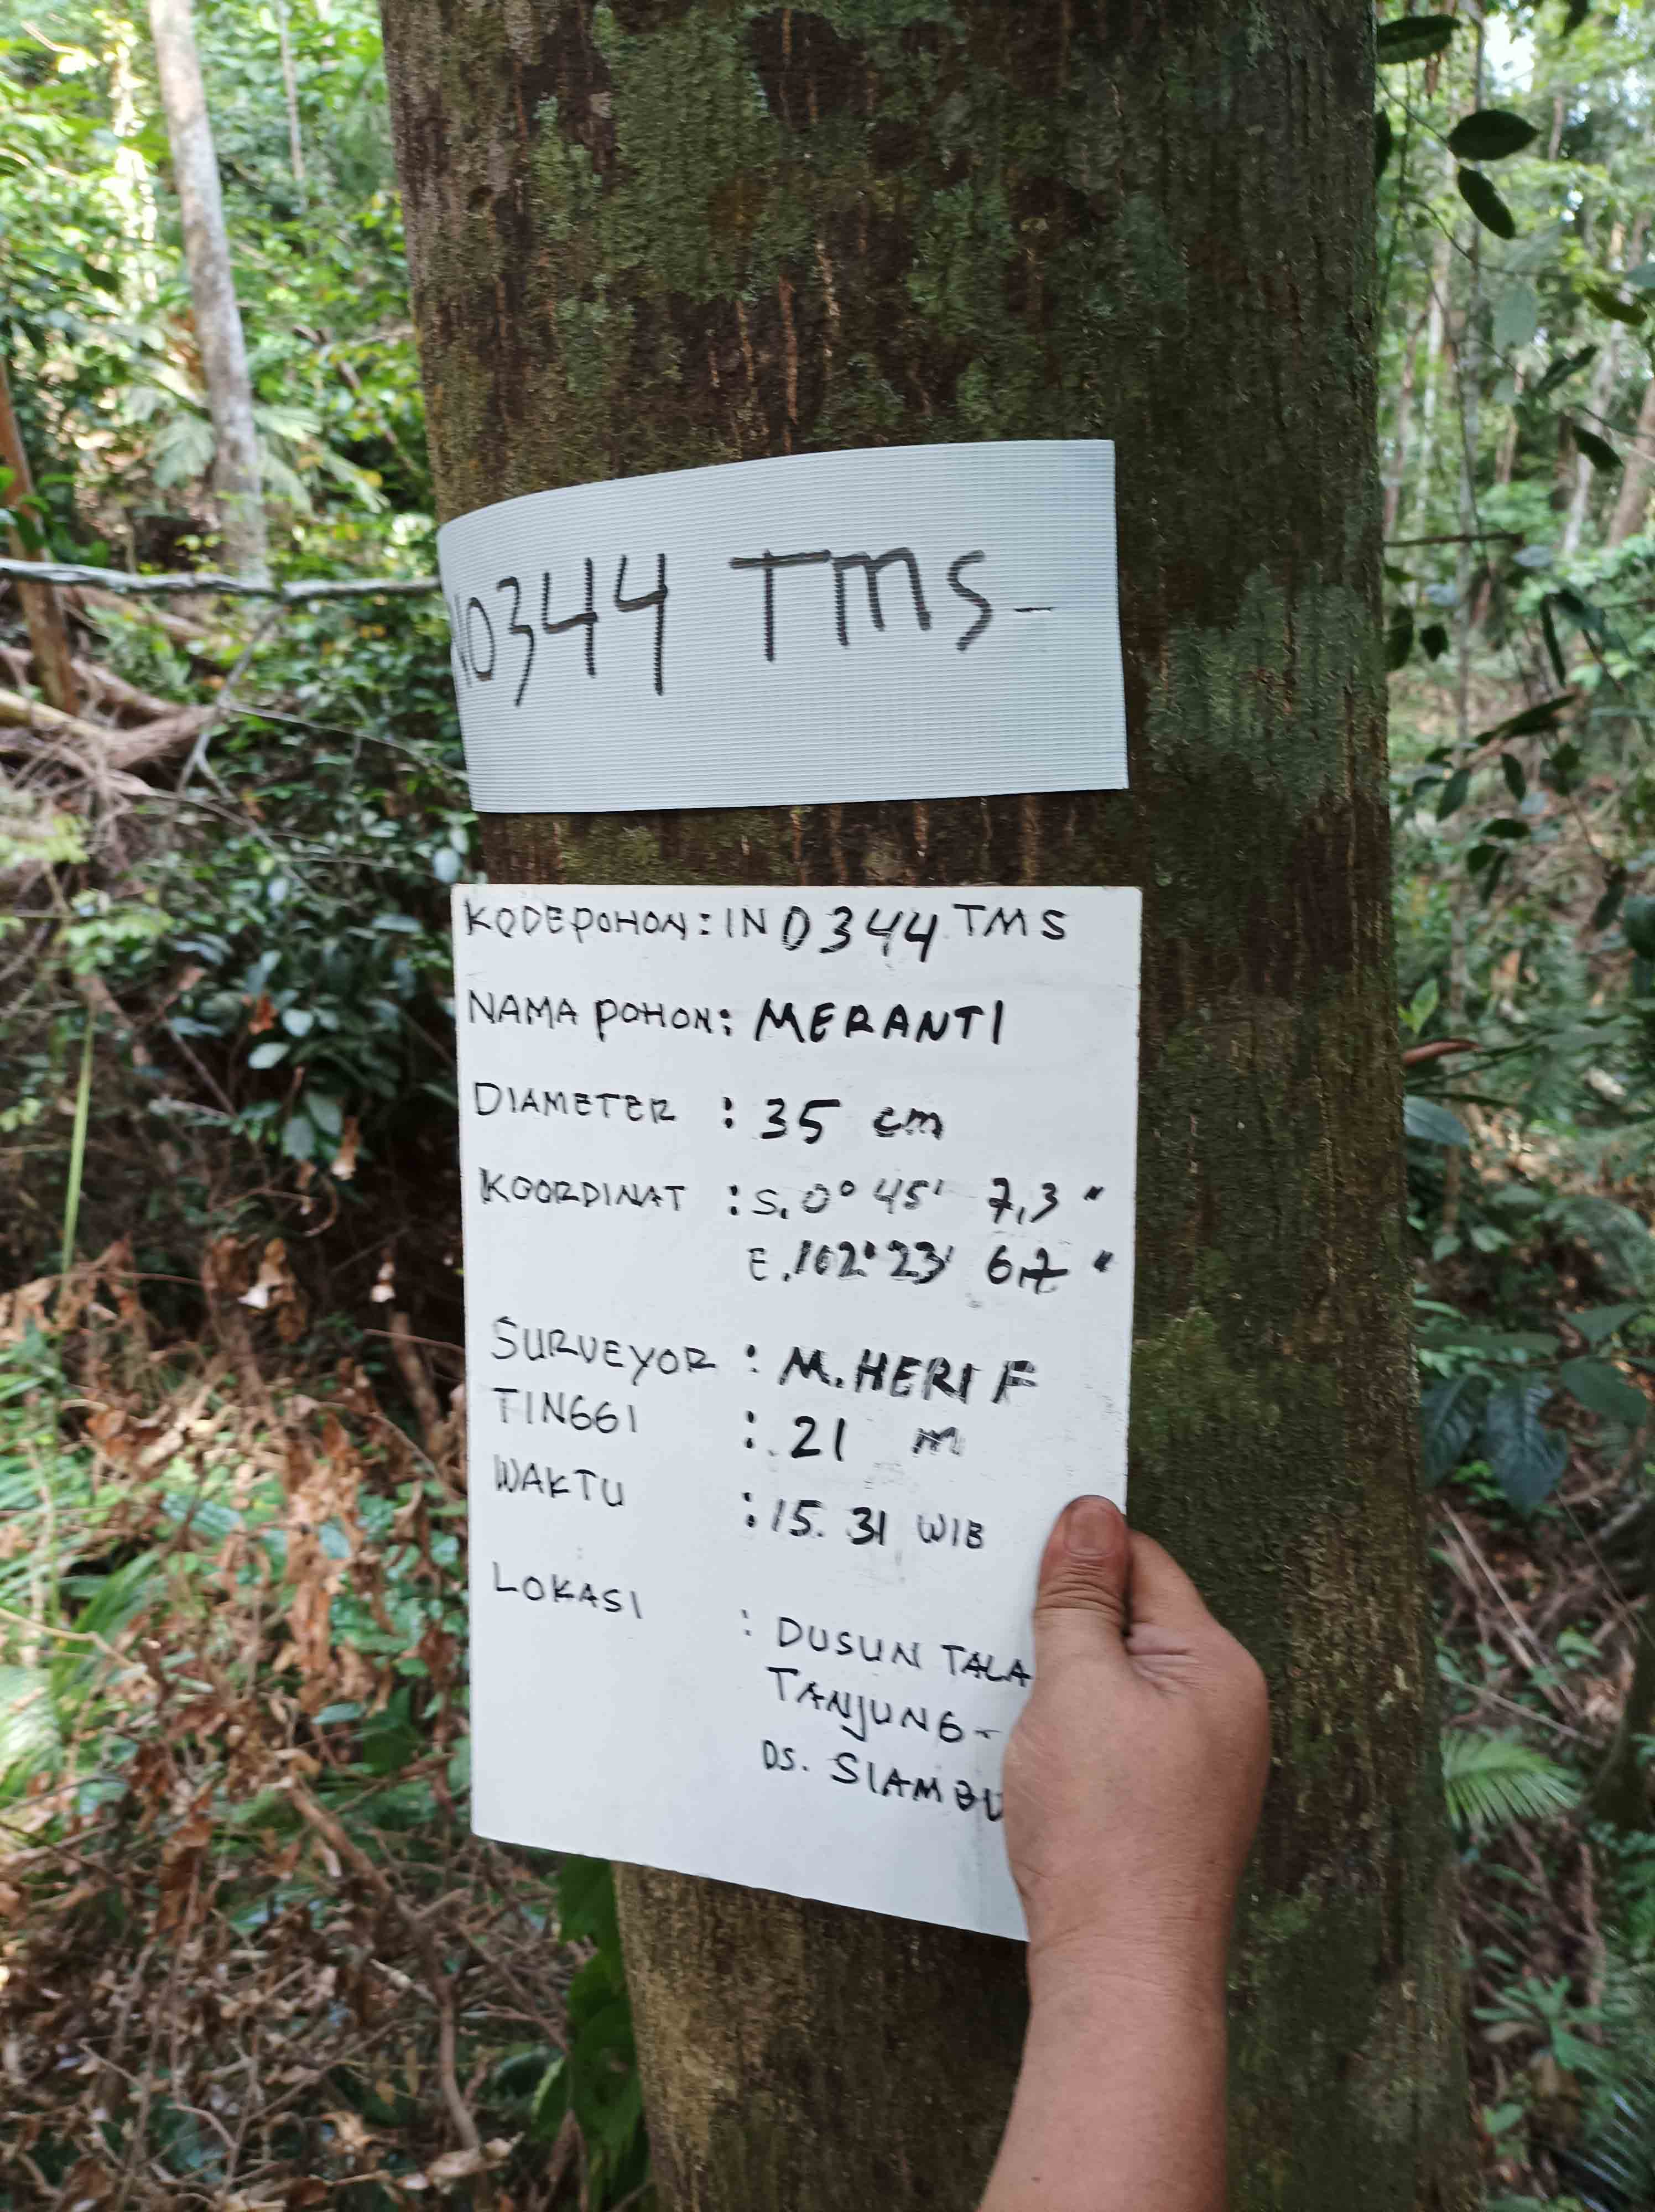 N0344 TMS-
KODE POHON : IN0344 TMS
NAMA POHON : MERANTI
DIAMETER : 35 cm
KOORDINAT : S. 0° 45' 7,3"
E. 102° 23' 6,7"
SURVEYOR : M. HERI F
TINGGI : 21 m
WAKTU : 15. 31 WIB
LOKASI : DUSUN TALA
TANJUNG -
DS. SIAMBU